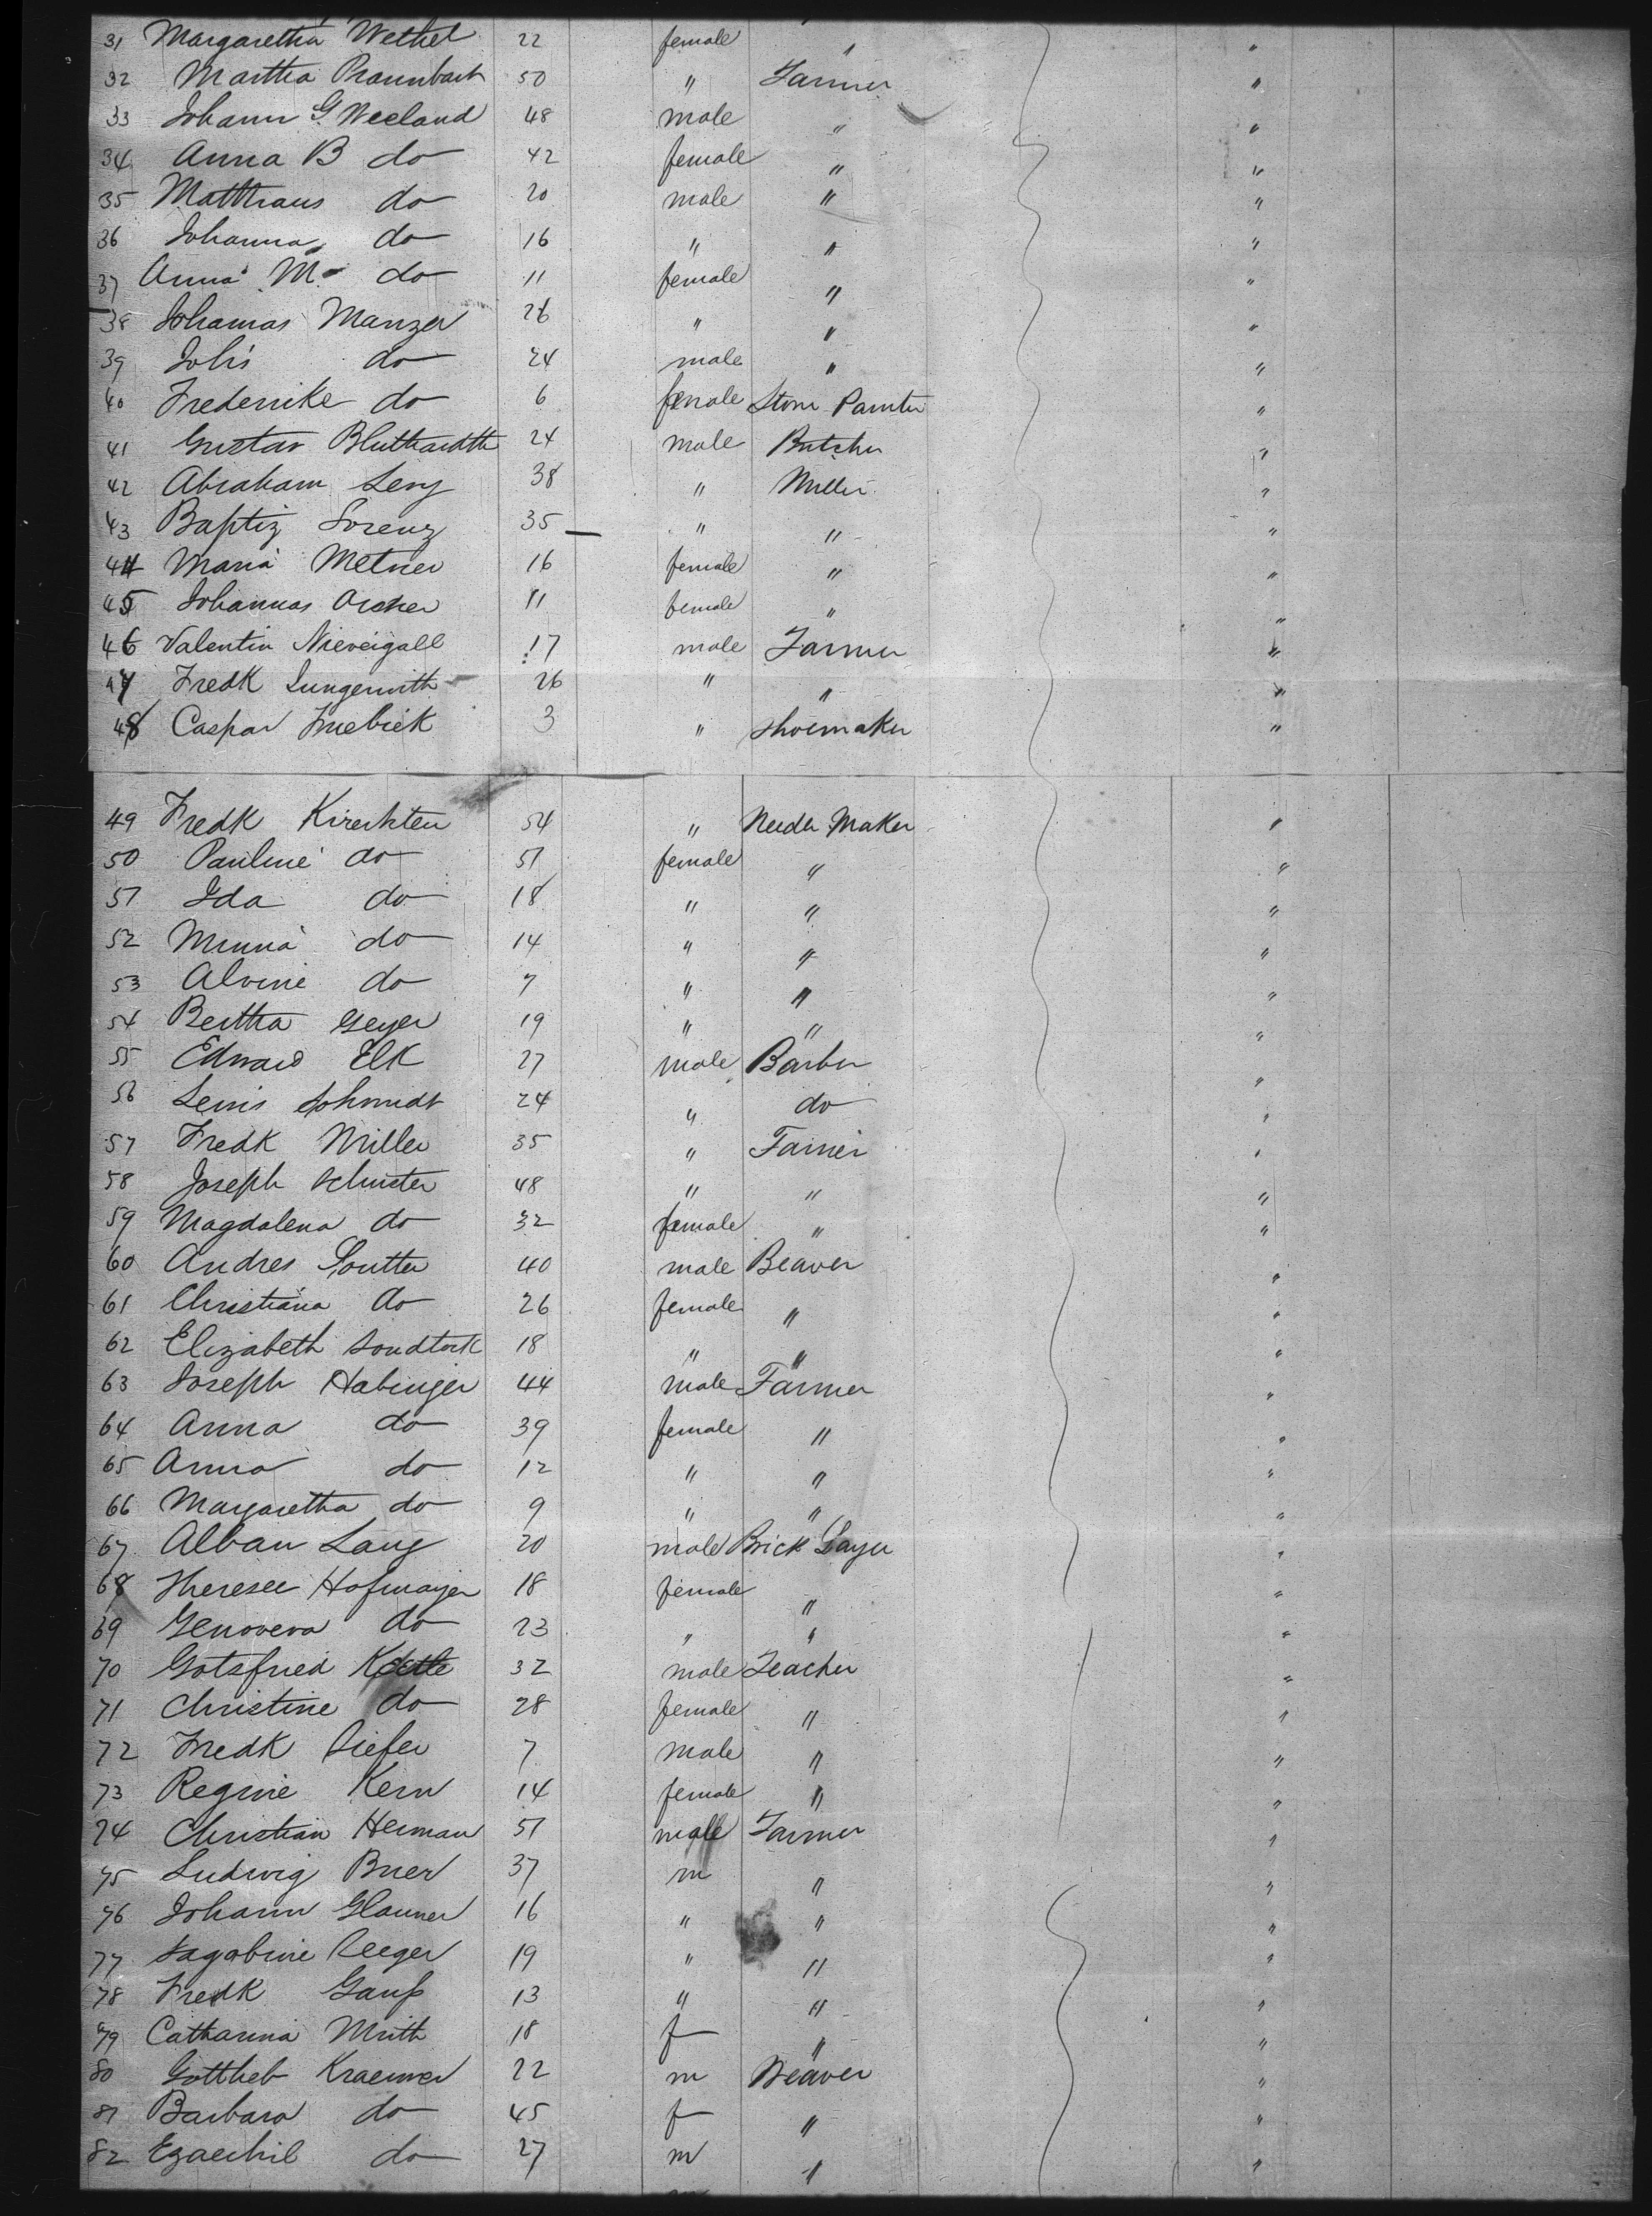 31 Margaretha Wethel 22 female " "
32 Martha Praunbach 50 " Farmer "
33 Johann G. Weeland 48 male " "
34 Anna B do 42 female " "
35 Matthaus do 20 male " "
36 Johanna do 16 " " "
37 Anna M. do 11 female " "
38 Johamas Manzer 26 " " "
39 Johs do 24 male " "
40 Frederike do 6 female Stone Painter "
41 Gustav Bluthardth 24 male Butcher "
42 Abraham Levy 38 " Miller "
43 Baptiz Lorenz 35 " " "
44 Maria Metner 16 female " "
45 Johannas Archer 11 female " "
46 Valentin Nieveigall 17 male Farmer "
47 Fredk Lungerwith 26 " " "
48 Caspar 3 " shoemaker "
49 Fredk Kirchten 54 " Needle Maker "
50 Pauline do 51 female " "
51 Ida do 18 " " "
52 Minna do 14 " " "
53 Alvine do 7 " " "
54 Bertha Geyer 19 " " "
55 Edward Elk 27 male Barber "
56 Lewis Schmidt 24 " do "
57 Fredk Miller 35 " Farmer "
58 Joseph Schuster 48 " " "
59 Magdalena do 32 female " "
60 Andres Soutter 40 male Beaver "
61 Christiana do 26 female " "
62 Elizabeth Sondtork 18 " " "
63 Joseph Habinger 44 male Farmer "
64 Anna do 39 female " "
65 Anna do 12 " " "
66 Margaretha do 9 " " "
67 Alban Lang 20 male Brick Layer "
68 Theresee Hofmayer 18 female " "
69 Genoveva do 23 " " "
70 Gotsfried Koetle 32 male Teacher "
71 Christine do 28 female " "
72 Fredk Tiefer 7 male " "
73 Regine Kern 14 female " "
74 Christian Herman 51 male Farmer "
75 Ludwig Bner 37 m " "
76 Johann Glauner 16 " " "
77 Jagobine Reeger 19 " " "
78 Fredk Gauß 13 " " "
79 Catharina Mrith 18 f " "
80 Gottlieb Kraemer 22 m Weaver "
81 Barbara do 45 f " "
82 Ezaechil do 27 m " "